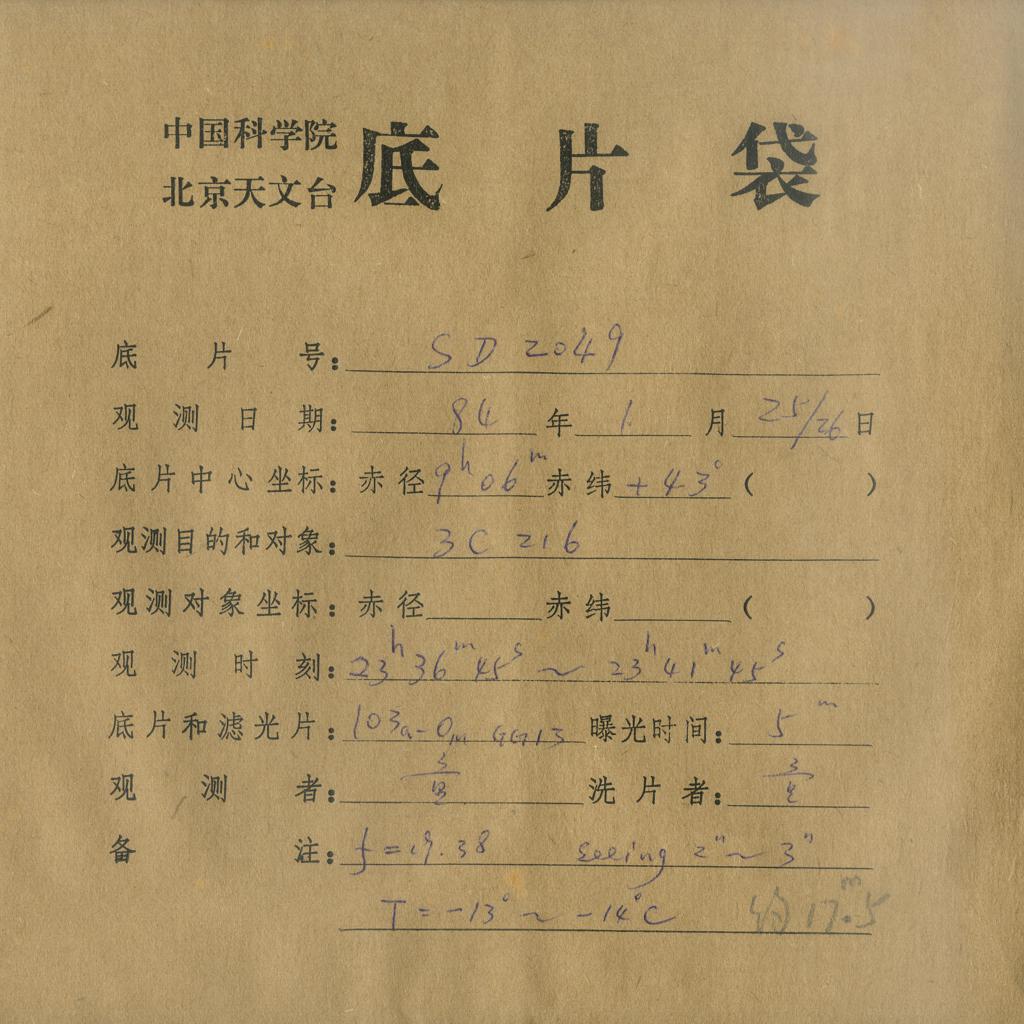 中国科学院
北京天文台 底片袋
底片号: SD 2049
观测日期: 84 年 1 月 25/26 日
底片中心坐标: 赤径 9h 06m 赤纬 +43° ( )
观测目的和对象: 3C 216
观测对象坐标: 赤径 赤纬 ( )
观测时刻: 23h 36m 45s ~ 23h 41m 45s
底片和滤光片: 103a-O, GG13 曝光时间: 5m
观测者: 洗片者:
备注: f=19.38 seeing 2"~3"
T=-13°~-14°C 约17m.5